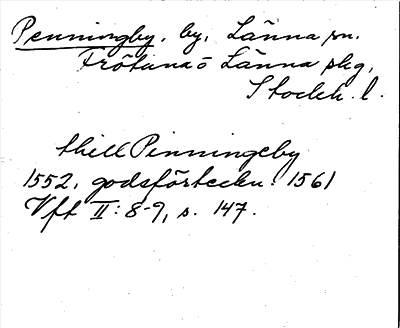 Penningby, by, Länna sn.
Frötuna o Länna skg,
Stockh. l.
thill Pinningeby
1552, godsförteckn. 1561
Vft II: 8-9, s. 147.